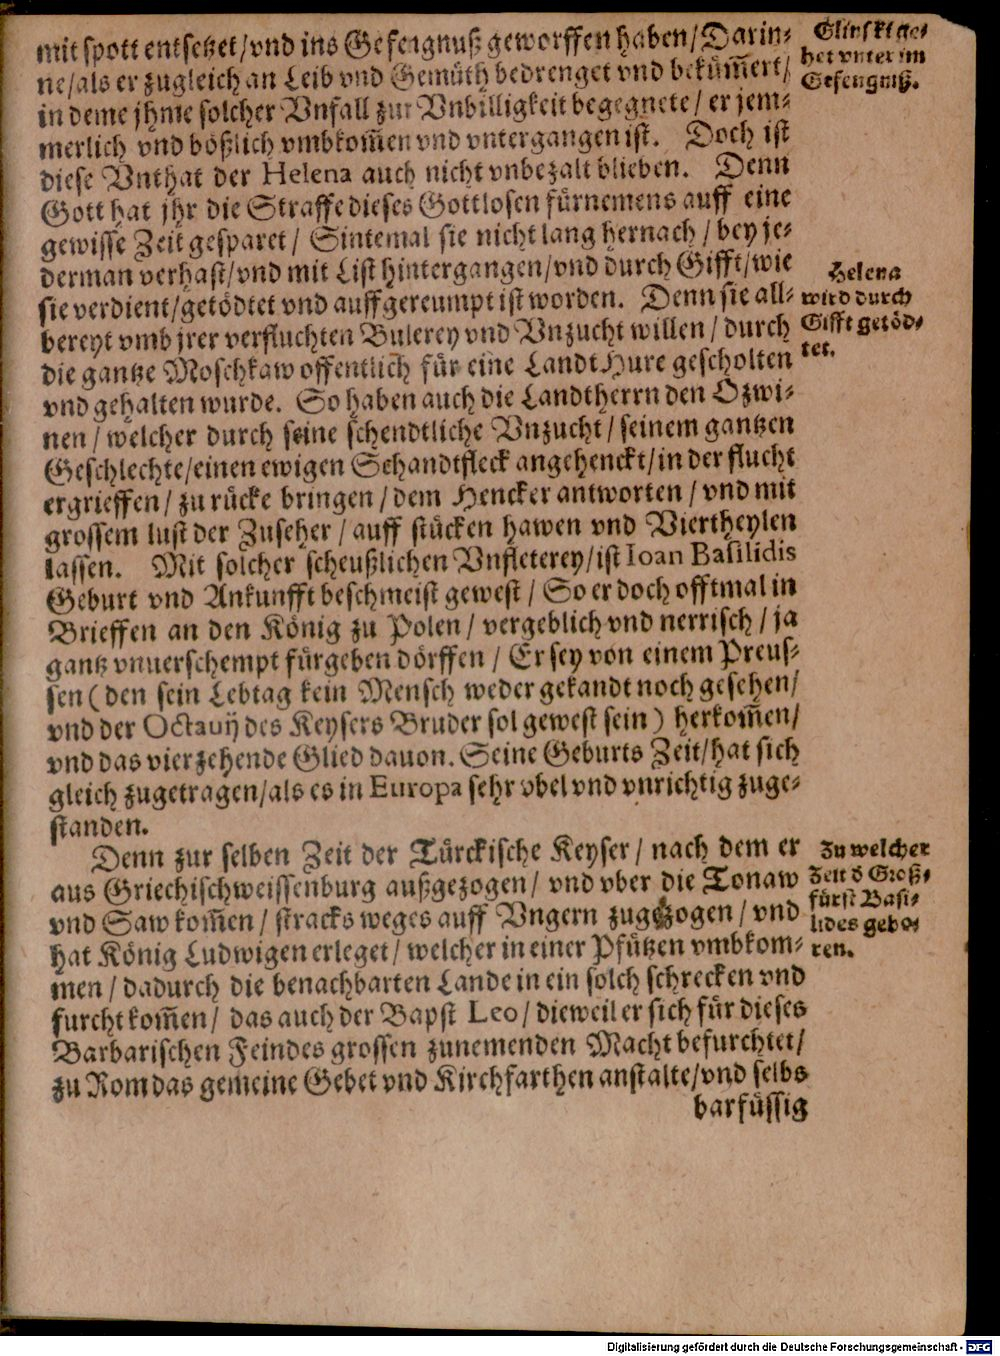 mit spott entsetzet/vnd ins Gefengnuß geworffen haben/Darin-
ne/als er zugleich an Leib vnd Gemüth bedrenget vnd bekům̃ert/
in deme jhme solcher Vnfall zur Vnbilligkeit begegnete/er jem-
merlich vnd bößlich vmbkom̃en vnd vntergangen ist. Doch ist
diese Vnthat der Helena auch nicht vnbezalt blieben. Denn
Gott hat jhr die Straffe dieses Gottlosen fürnemens auff eine
gewisse Zeit gesparet/ Sintemal sie nicht lang hernach/bey je-
derman verhast/vnd mit List hintergangen/vnd durch Gifft/wie
sie verdient/getödtet vnd auffgereumpt ist worden. Denn sie all-
bereyt vmb jrer verfluchten Bulerey vnd Vnzucht willen/durch
die gantze Moschkaw offentlich für eine LandtHure gescholten
vnd gehalten wurde. So haben auch die Landtherrn den Ozwi-
nen/welcher durch seine schendtliche Vnzucht/seinem gantzen
Geschlechte/einen ewigen Schandtfleck angehenckt/in der flucht
ergrieffen/zu rücke bringen/dem Hencker antworten/vnd mit
grossem lust der Zuseher/auff stücken hawen vnd Viertheylen
lassen. Mit solcher scheußlichen Vnfleterey/ist Ioan Basilidis
Geburt vnd Ankunfft beschmeist gewest/So er doch offtmal in
Brieffen an den König zu Polen/vergeblich vnd nerrisch/ja
gantz vnuerschempt fürgeben dörffen/Er sey von einem Preus-
sen (den sein Lebtag kein Mensch weder gekandt noch gesehen/
vnd der Octauij des Keysers Bruder sol gewest sein) herkom̃en/
vnd das vierzehende Glied dauon. Seine Geburts Zeit/hat sich
gleich zugetragen/als es in Europa sehr vbel vnd vnrichtig zuge-
standen.
Denn zur selben Zeit der Türckische Keyser/nach dem er
aus Griechischweissenburg außgezogen/vnd vber die Tonaw
vnd Saw kom̃en/stracks weges auff Vngern zugezogen/vnd
hat König Ludwigen erleget/welcher in einer Pfützen vmbkom-
men/dadurch die benachbarten Lande in ein solch schrecken vnd
furcht kom̃en/das auch der Bapst Leo/dieweil er sich für dieses
Barbarischen Feindes grossen zunemenden Macht befurchtet/
zu Rom das gemeine Gebet vnd Kirchfarthen anstalte/vnd selbs
barfüssig
Glinski ge-
het vnter im
Gefengniß.
Helena
wird durch
Gifft getöd-
tet.
Zu welcher
Zeit d Groß-
fürst Basi-
lides gebo-
ren.
Digitalisierung gefördert durch die Deutsche Forschungsgemeinschaft - DFG